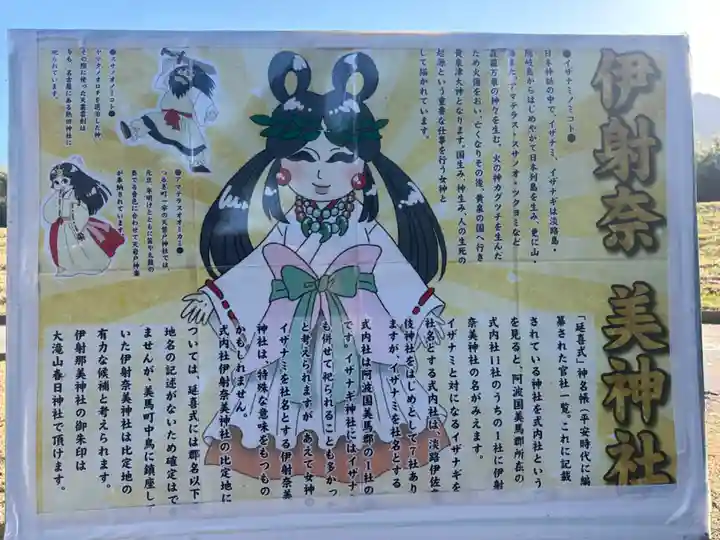 伊射奈美神社
●イザナミノミコト●
日本神話の中で、イザナミ、イザナギは淡路島・
隠岐島からはじめやがて日本列島を生み、更に山・
海また、アマテラス・スサノオ・ツクヨミなど
森羅万象の神々を生む。火の神カグツチを生んだ
ため火傷をおい、亡くなりその後、黄泉の国へ行き
黄泉津大神となります。国生み、神生み、人の生死の
起源という重要な仕事を行う女神と
して描かれています。
●スサノオノミコト●
ヤマタノオロチを退治した神
その際に使った天叢雲剣は
今も、名古屋にある熱田神社に
祀られています。
●アマテラスオオーカミ●
つるぎ町一宇の天磐戸神社では、
元旦、年明けとともに笛や太鼓の
奏でる音色に合わせて天岩戸神楽
が奉納されています。
「延喜式」神名帳(平安時代に編
纂された官社一覧。これに記載
されている神社を式内社という
を見ると、阿波国美馬郡所在の
式内社11社のうちの1社に伊射
奈美神社の名がみえます。
イザナミと対になるイザナギを
社名とする式内社は、淡路伊佐
伎神社をはじめとして7社あり
ますが、イザナミを社名とする
式内社は阿波国美馬郡の1社の
です。イザナギ神社にはイザナ
も併せて祀られることも多かっ
と考えられますが、あえて女神
イザナミを社名とする伊射奈美
神社は、特殊な意味をもつもの
かもしれません。
式内社伊射奈美神社の比定地に
ついては、延喜式には郡名以下
地名の記述がないため確定はで
ませんが、美馬町中鳥に鎮座し
いた伊射奈美神社は比定地の
有力な候補と考えられます。
伊射那美神社の御朱印は
大滝山春日神社で頂けます。